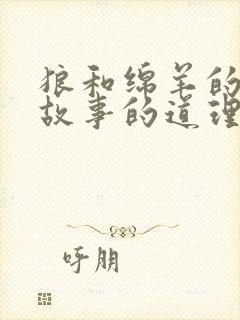 狼和绵羊的
故事的道理
呼朋